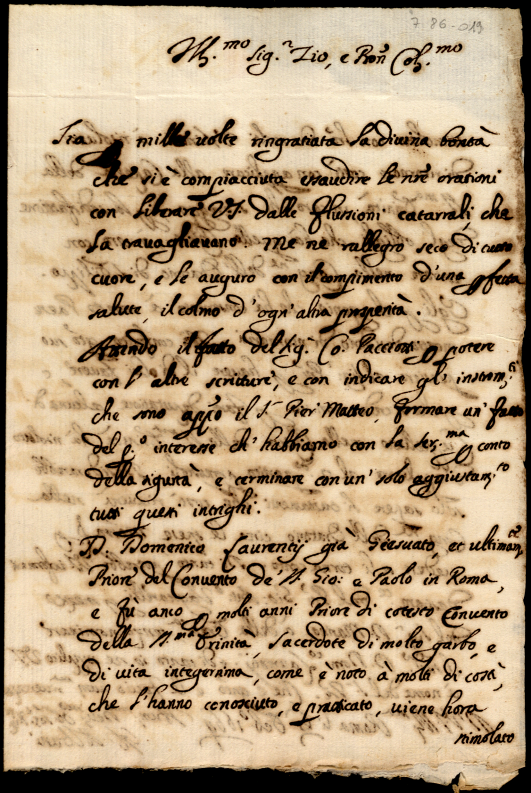 7-86-019
Ill.mo Sig.r Zio, e Pron Col.mo
Sia mille volte ringratiata la divina bontà
che si è compiacciuta essaudire le nre orationi
con liberare VS. dalle flussioni catarrali, che
la travagliavano. Me ne rallegro seco di tutto
cuore, e le auguro con il compimento d'una pfetta
salute, il colmo d'ogn'altra prosperità.
Attendo il fatto del Sig. Co. Paccioni p potere
con l'altre scritture, e con indicare gl' instrom.ti
che sono app.o il S.r Pier Matteo, formare un' fatto
del p.o interesse ch' habbiamo con la Ser.ma p conto
della sigurtà, e terminare con un' solo aggiustam.to
tutti questi intrighi.
D. Domenico Laurentij già Giesuato, et ultimam.te
Priore del Convento de' S. Gio: e Paolo in Roma,
e fù anco p molti anni Priore di cotesto Convento
della S.ma Trinità, sacerdote di molto garbo, e
di vita integerrima, come è noto à molti di costì,
che l'hanno conosciuto, e praticato, viene hora
stimolato